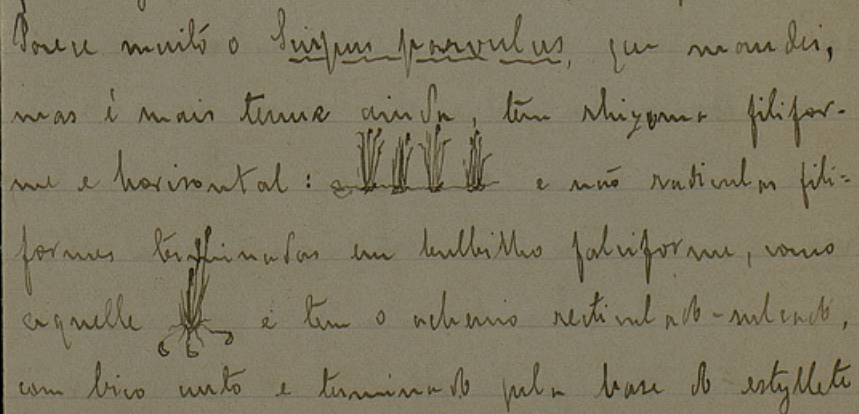 Parece muito o Scirpus parvulus, que mandei,
mas é mais tenue ainda, tem rhizoma filifor-
me e horisontal: e não radiculas fili-
formes terminadas em bulbilho falciforme, como
aquelle e tem o achenio recticulado-sulcado,
com bico curto e terminado pela base do estyllete